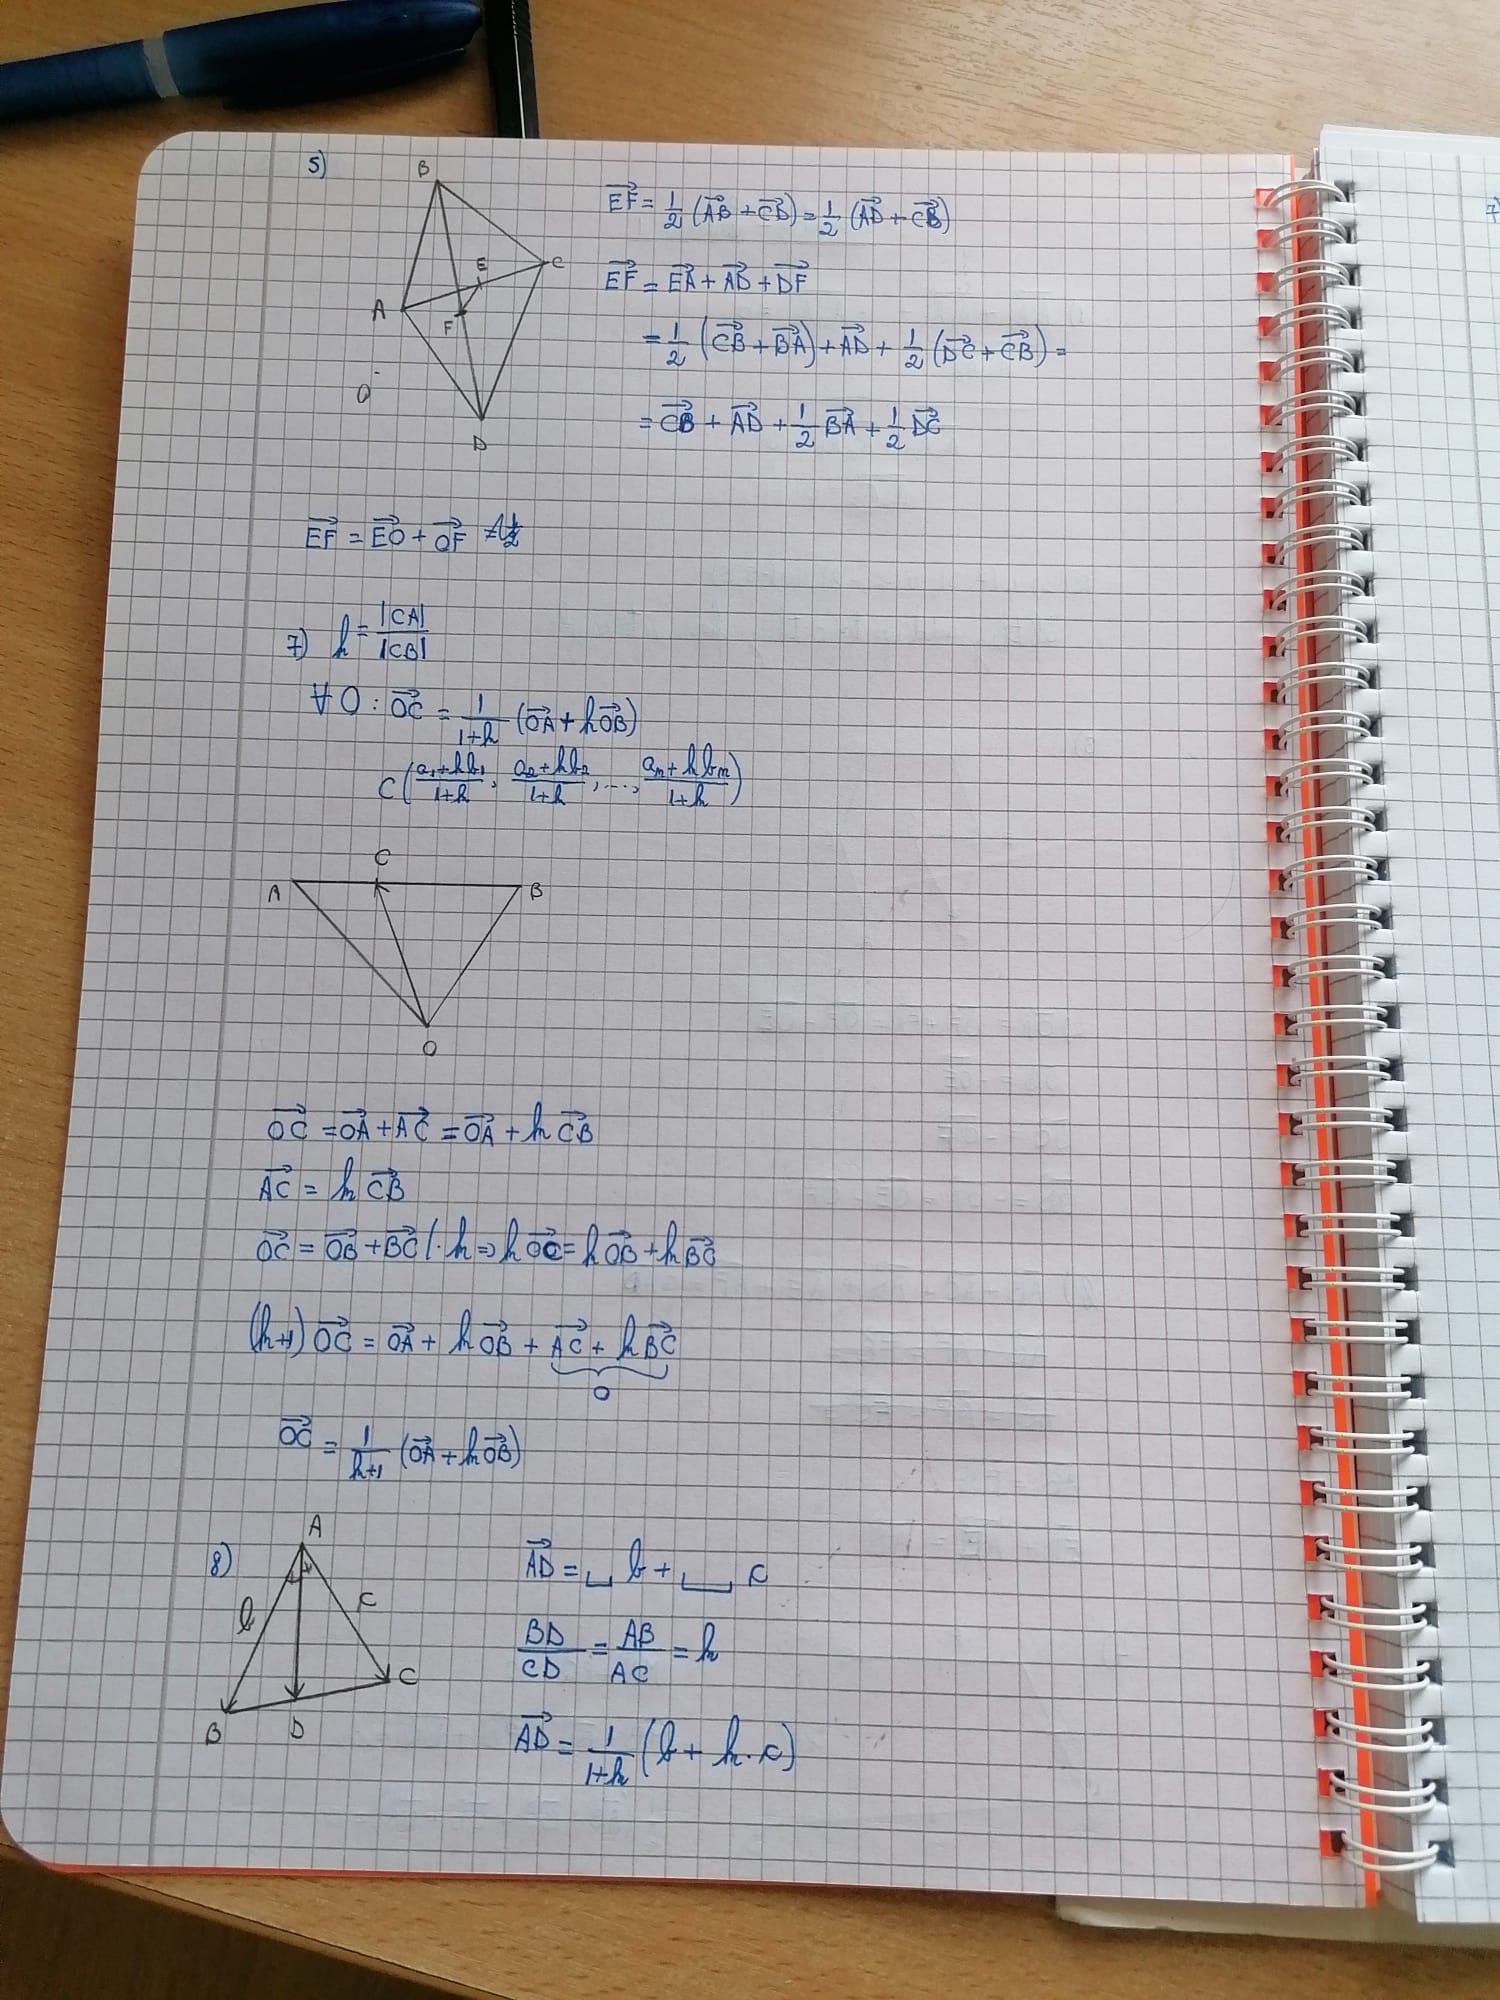 5)
B
E
C
A
F
O
D
EF⃗ = 1/2 (AB⃗ + CD⃗) = 1/2 (AD⃗ + CB⃗)
EF⃗ = EA⃗ + AD⃗ + DF⃗
= 1/2 (CB⃗ + BA⃗) + AD⃗ + 1/2 (DC⃗ + CB⃗) =
= CB⃗ + AD⃗ + 1/2 BA⃗ + 1/2 DC⃗
EF⃗ = EO⃗ + OF⃗
7) k = |CA| / |CB|
∀ O : OC⃗ = 1/(1+k) (OA⃗ + k OB⃗)
C ( (a₁+kb₁)/(1+k), (a₂+kb₂)/(1+k), ..., (aₙ+kbₙ)/(1+k) )
C
A
B
O
OC⃗ = OA⃗ + AC⃗ = OA⃗ + k CB⃗
AC⃗ = k CB⃗
OC⃗ = OB⃗ + BC⃗ / · k ⇒ k OC⃗ = k OB⃗ + k BC⃗
(k+1) OC⃗ = OA⃗ + k OB⃗ + AC⃗ + k BC⃗
0
OC⃗ = 1/(k+1) (OA⃗ + k OB⃗)
8)
A
b
c
C
B
D
AD⃗ = ␣ b + ␣ c
BD/CD = AB/AC = k
AD⃗ = 1/(1+k) (b + k · c)
7)